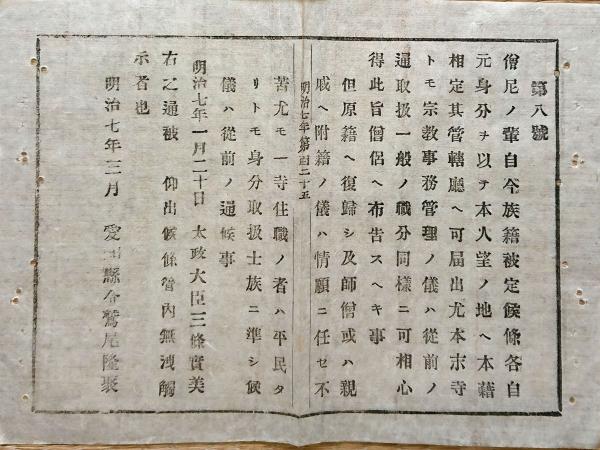 第八號
僧尼ノ輩自今族籍被定候條各自
元身分ヲ以テ本人望ノ地ヘ本籍
相定其管轄廳ヘ可届出尤本末寺
トモ宗教事務管理ノ儀ハ從前ノ
通取扱一般ノ職分同樣ニ可相心
得此旨僧侶ヘ布告スヘキ事
但原籍ヘ復歸シ及師僧或ハ親
戚ヘ附籍ノ儀ハ情願ニ任セ不
明治七年第百二十五
苦尤モ一寺住職ノ者ハ平民タ
リトモ身分取扱士族ニ準シ候
儀ハ從前ノ通候事
明治七年一月二十日 太政大臣三條實美
右之通被 仰出候條管内無洩觸
示者也
明治七年三月 愛知縣令鷲尾隆聚